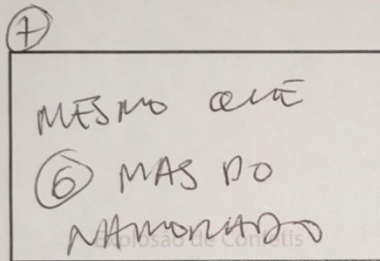 7
MESMO QUE
6 MAS DO
NAMORADO
Explosão de Confetis